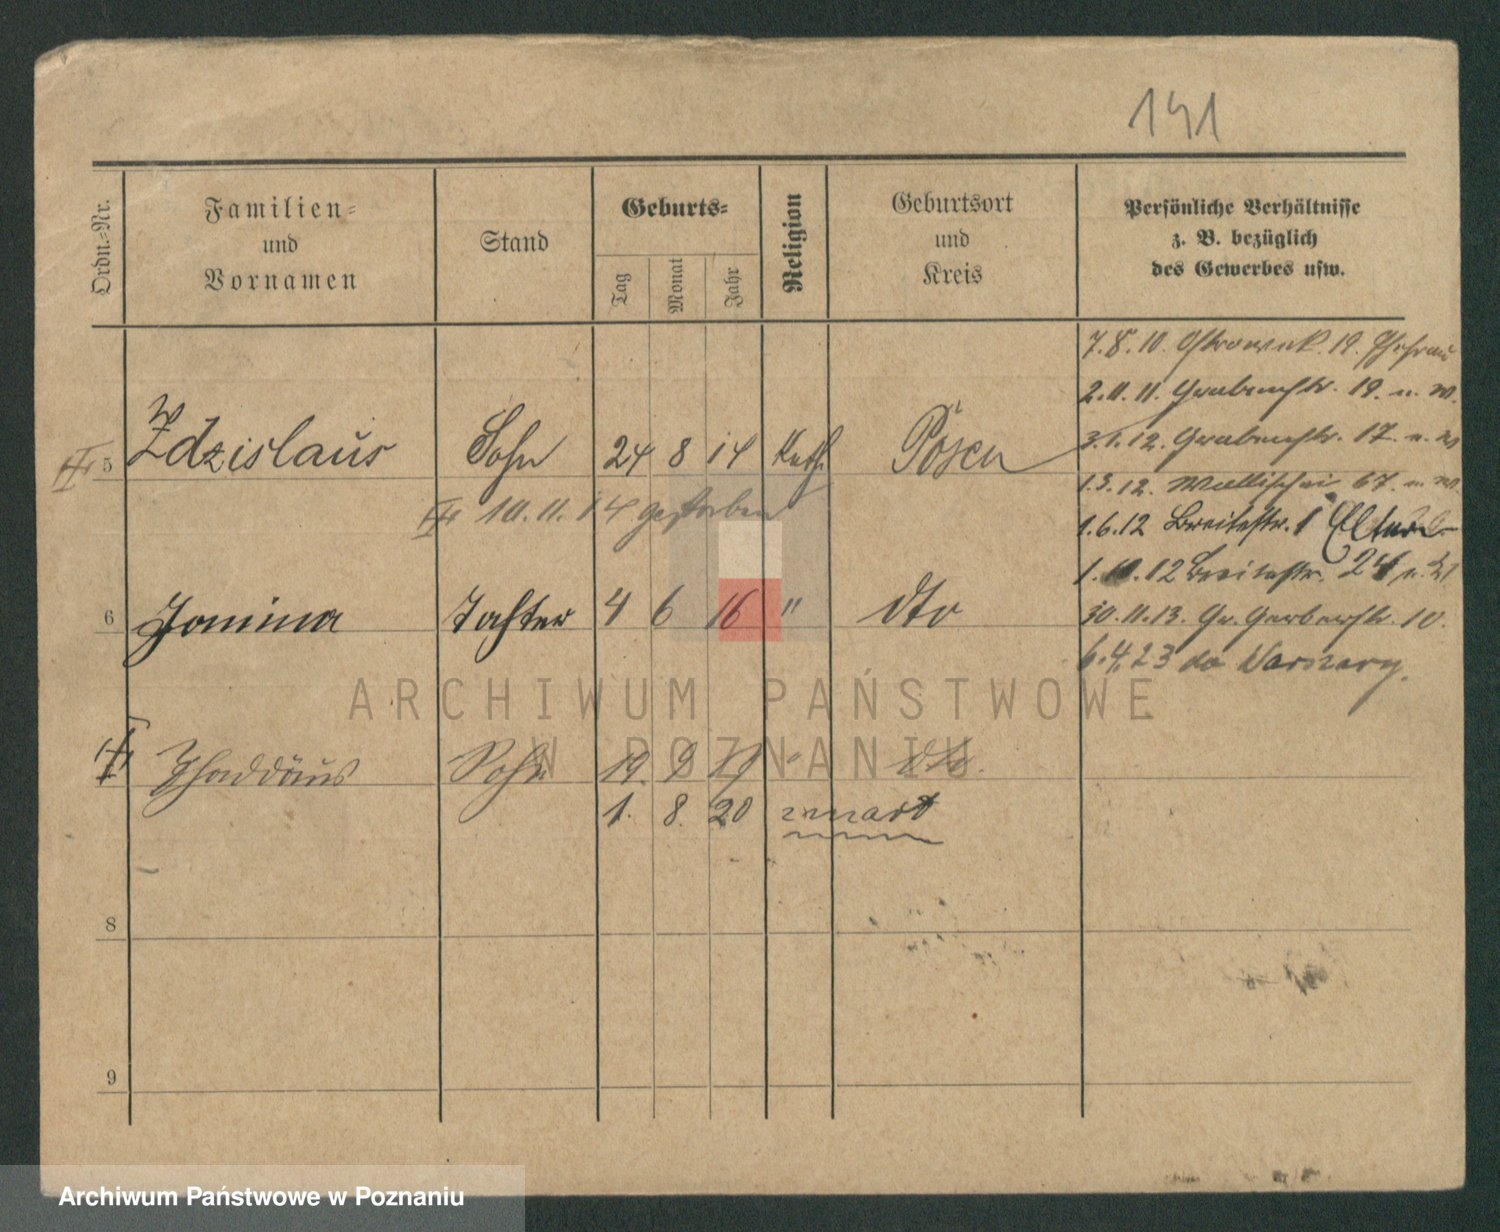 141
Ordn.=Nr.
Familien=
und
Vornamen
Stand
Geburts=
Tag
Monat
Jahr
Religion
Geburtsort
und
Kreis
Persönliche Verhältnisse
z. B. bezüglich
des Gewerbes usw.
7.8.10. Ostrowek. 19.
2.11.11. Grabenstr. 19. u. W.
3.1.12. Grabenstr. 17. u. W
1.3.12. Wallischei 67. u. W.
1.6.12 Breitestr. 1 Eltern
1.10.12 Breitestr. 24 u.
30.11.13. Gr. Gerberstr. 10.
6.4.23 do Warszawy.
5 Zdzislaus Sohn 24 8 14 Kath. Posen
10.11.14 gestorben
6 Janina Tochter 4 6 16 " dto
Thaddäus Sohn 19. 9 19 " dto.
1. 8. 20 zmarł
8
9
ARCHIWUM PAŃSTWOWE
W POZNANIU
Archiwum Państwowe w Poznaniu